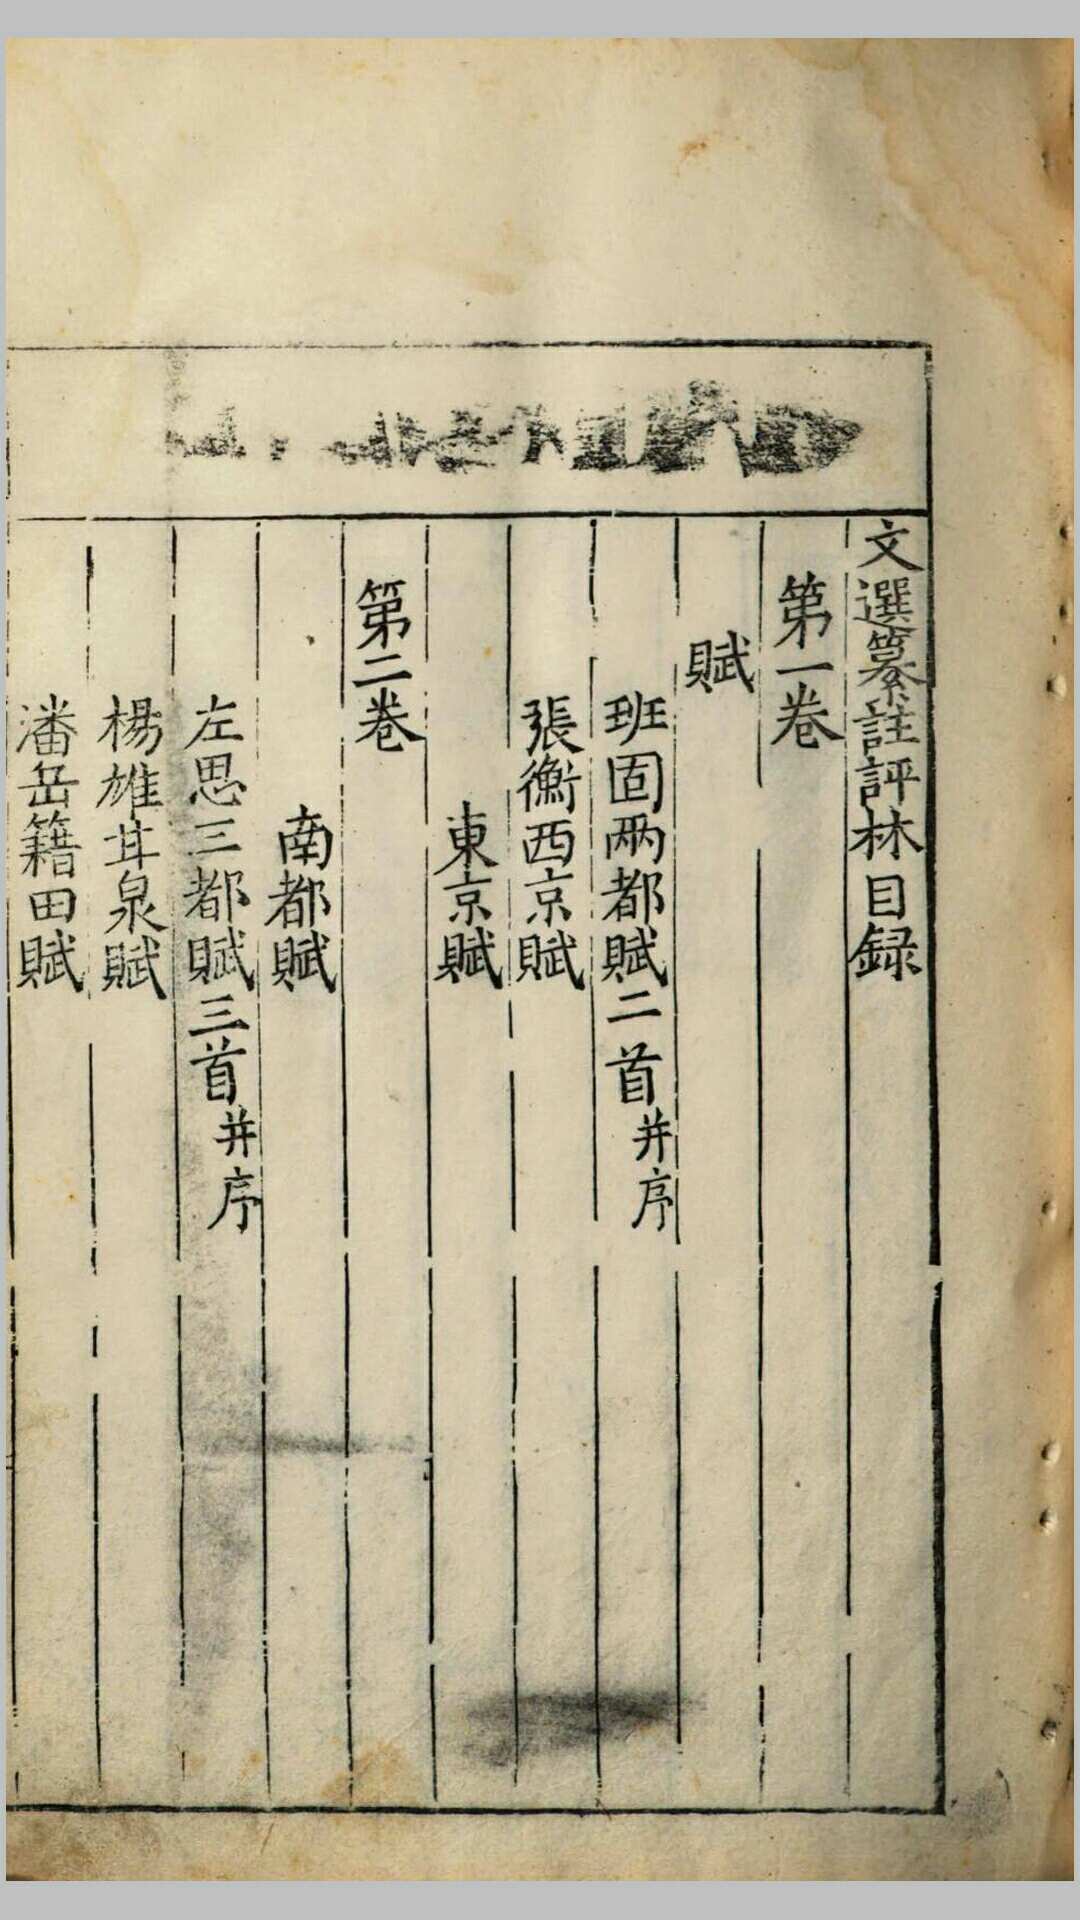 文選纂註評林目録
第一卷
賦
班固兩都賦二首并序
張衡西京賦
東京賦
第二卷
南都賦
左思三都賦三首并序
楊雄甘泉賦
潘岳籍田賦